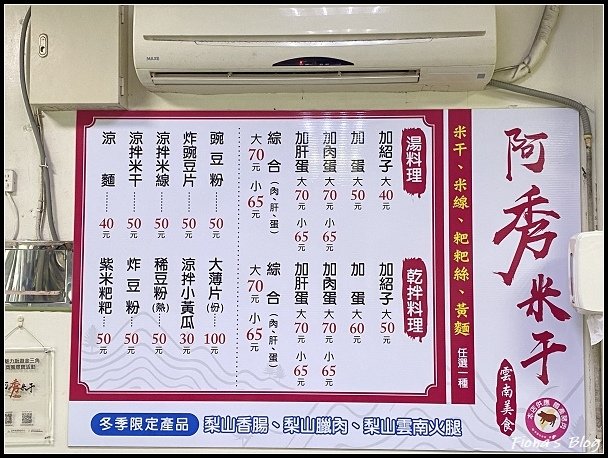 阿秀米干
雲南美食
米干、米線、粑粑絲、黃麵 任選一種
湯料理
加紹子 大40元
加蛋 大50元
加肉蛋 大70元 小65元
加肝蛋 大70元 小65元
綜合(肉、肝、蛋) 大70元 小65元
乾拌料理
加紹子 大50元
加蛋 大60元
加肉蛋 大70元 小65元
加肝蛋 大70元 小65元
綜合(肉、肝、蛋) 大70元 小65元
豌豆粉……50元
炸豌豆片……50元
涼拌米線……50元
涼拌米干……50元
涼麵……40元
大薄片(份)……100元
涼拌小黃瓜 30元
稀豆粉(熱)……50元
炸豆粉……50元
紫米粑粑……50元
冬季限定產品 梨山香腸、梨山臘肉、梨山雲南火腿
Fiona's Blog